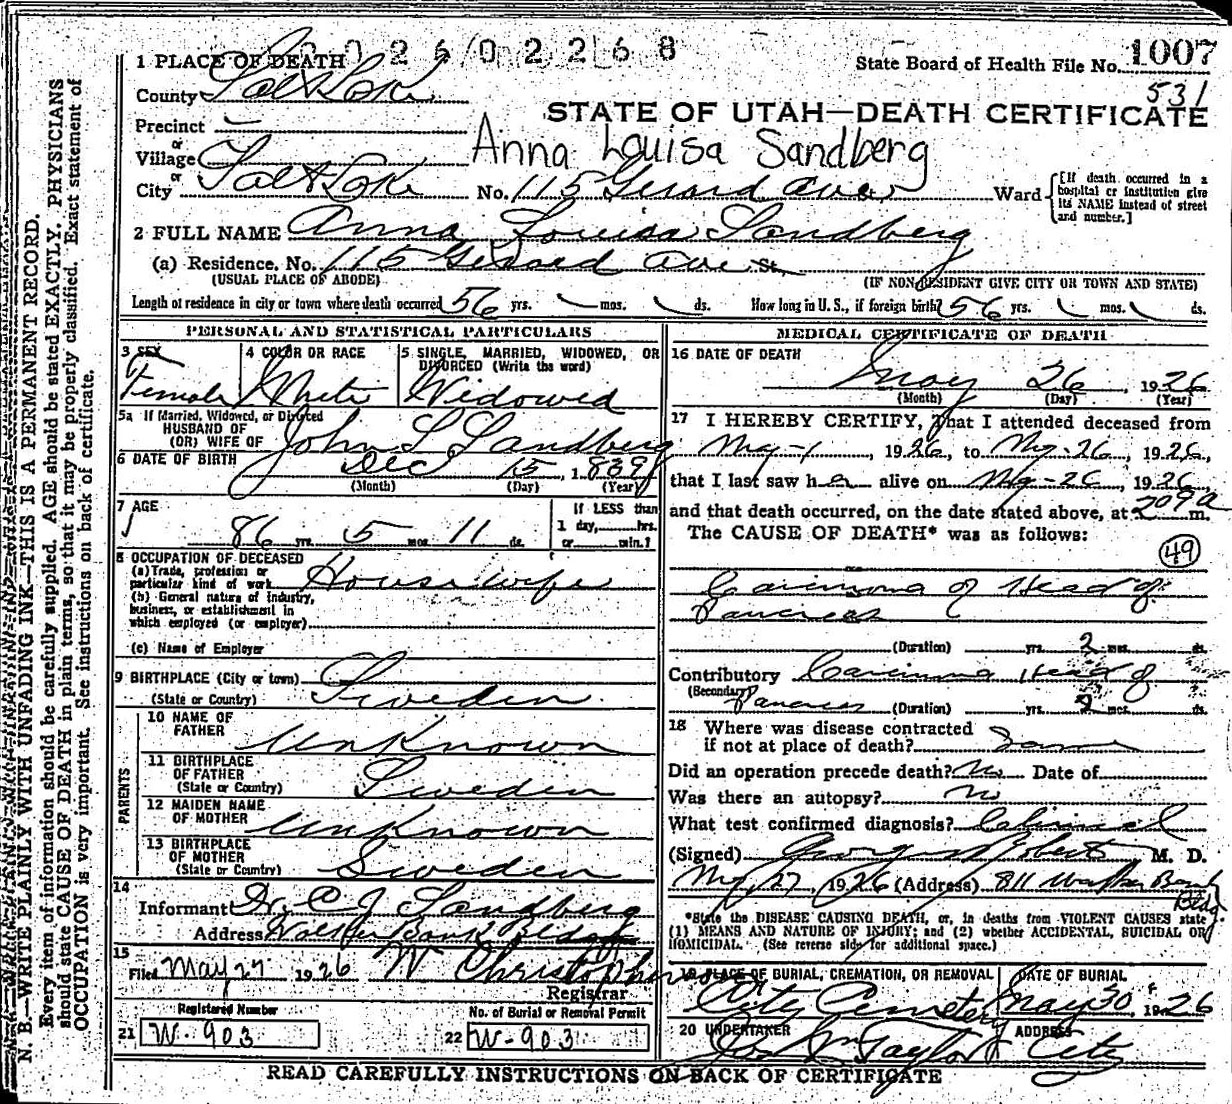 N. B.—WRITE PLAINLY WITH UNFADING INK—THIS IS A PERMANENT RECORD.
Every item of information should be carefully supplied. AGE should be stated EXACTLY. PHYSICIANS
should state CAUSE OF DEATH in plain terms, so that it may be properly classified. Exact statement of
OCCUPATION is very important. See instructions on back of certificate.
0026/02268
1 PLACE OF DEATH
State Board of Health File No. 1007
531
County Salt Lake
STATE OF UTAH—DEATH CERTIFICATE
Precinct —
or
Village
Anna Louisa Sandberg
or
City Salt Lake No. 115 Girard Ave Ward
[If death occurred in a
hospital or institution give
its NAME instead of street
and number.]
2 FULL NAME Anna Louisa Sandberg
(a) Residence. No. 115 Girard Ave St.
(USUAL PLACE OF ABODE) (IF NON-RESIDENT GIVE CITY OR TOWN AND STATE)
Length of residence in city or town where death occurred 56 yrs. mos. ds. How long in U. S., if foreign birth? 56 yrs. mos. ds.
PERSONAL AND STATISTICAL PARTICULARS
3 SEX 4 COLOR OR RACE 5 SINGLE, MARRIED, WIDOWED, OR
DIVORCED (Write the word)
Female White Widowed
5a If Married, Widowed, or Divorced
HUSBAND OF
(OR) WIFE OF John L Sandberg
6 DATE OF BIRTH Dec 15, 1839
(Month) (Day) (Year)
7 AGE
If LESS than
1 day,....hrs.
or ....min.?
86 yrs. 5 mos. 11 ds.
8 OCCUPATION OF DECEASED
(a) Trade, profession or
particular kind of work Housewife
(b) General nature of industry,
business, or establishment in
which employed (or employer)
(c) Name of Employer
9 BIRTHPLACE (City or town)
(State or Country) Sweden
PARENTS
10 NAME OF
FATHER Unknown
11 BIRTHPLACE
OF FATHER
(State or Country) Sweden
12 MAIDEN NAME
OF MOTHER Unknown
13 BIRTHPLACE
OF MOTHER
(State or Country) Sweden
14
Informant Dr. C J Sandberg
Address Walker Bank Bldg
15
Filed May 27 1926 W Christopherson
Registrar
Registered Number No. of Burial or Removal Permit
21 W-903 22 W-903
MEDICAL CERTIFICATE OF DEATH
16 DATE OF DEATH
May 26, 1926
(Month) (Day) (Year)
17 I HEREBY CERTIFY, That I attended deceased from
My-1, 1926, to My-26, 1926,
that I last saw her alive on My-26, 1926,
and that death occurred, on the date stated above, at 209 a m.
The CAUSE OF DEATH* was as follows:
49
Carcinoma of Head of
Pancreas
(Duration) yrs. 2 mos. ds.
Contributory Carcinoma Head of
(Secondary) Pancreas (Duration) yrs. 2 mos. ds.
18 Where was disease contracted
if not at place of death? Same
Did an operation precede death? No Date of
Was there an autopsy? No
What test confirmed diagnosis? Clinical
(Signed) George Roberts M. D.
My 27, 1926 (Address) 811 Walker Bank
Bldg
*State the DISEASE CAUSING DEATH, or, in deaths from VIOLENT CAUSES state
(1) MEANS AND NATURE OF INJURY; and (2) whether ACCIDENTAL, SUICIDAL OR
HOMICIDAL. (See reverse side for additional space.)
19 PLACE OF BURIAL, CREMATION, OR REMOVAL DATE OF BURIAL
City Cemetery May 30, 1926
20 UNDERTAKER ADDRESS
Jos Wm Taylor City
READ CAREFULLY INSTRUCTIONS ON BACK OF CERTIFICATE